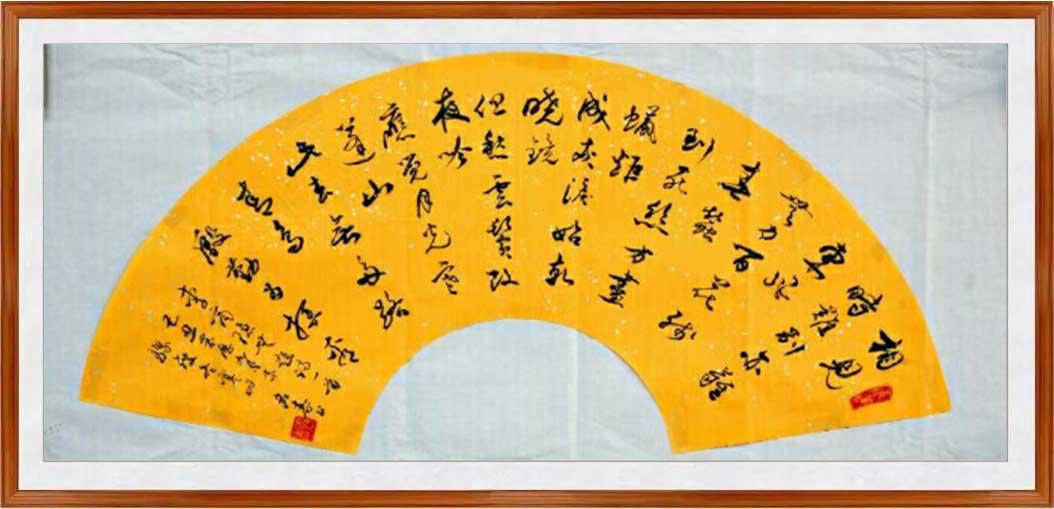 相見
時難別亦難
東風
無力百花殘
春蠶
到死絲方盡
蠟炬
成灰淚始乾
曉鏡
但愁雲鬢改
夜吟
應覺月光寒
蓬山
此去無多路
青鳥
殷勤為探看
李商隱無題詩一首
己丑